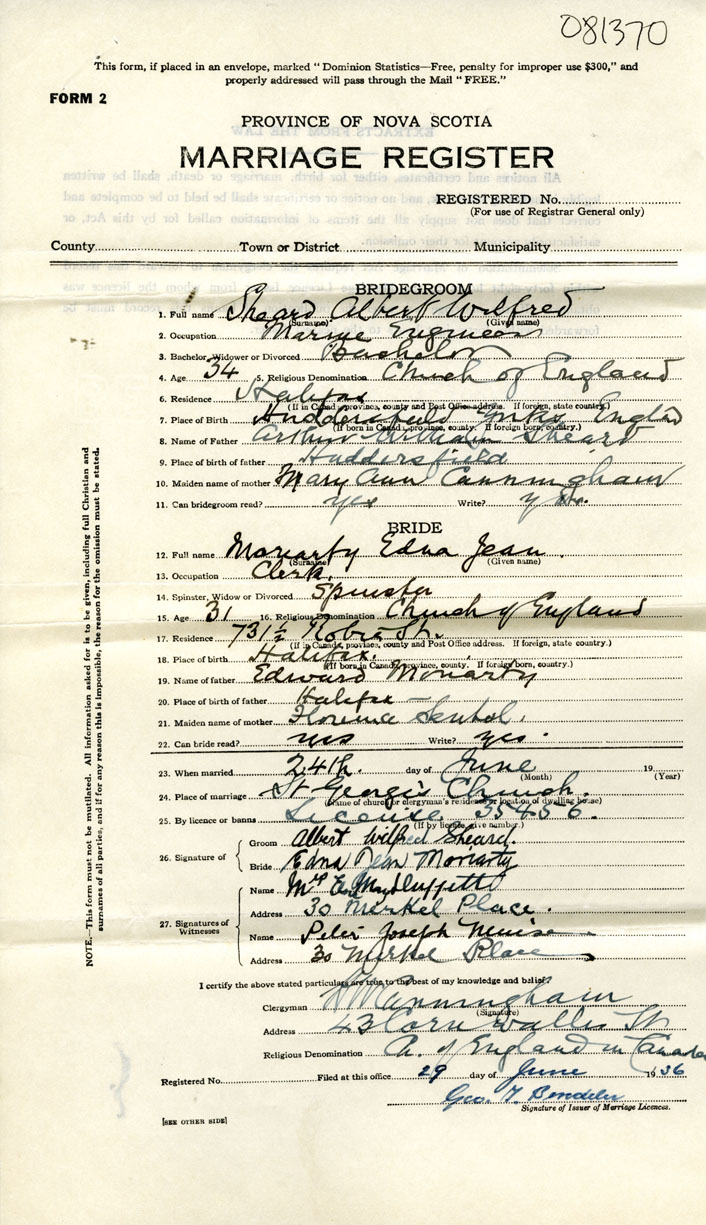 081370
This form, if placed in an envelope, marked "Dominion Statistics—Free, penalty for improper use $300," and
properly addressed will pass through the Mail "FREE."
FORM 2
PROVINCE OF NOVA SCOTIA
MARRIAGE REGISTER
REGISTERED No.
(For use of Registrar General only)
County Town or District Municipality
BRIDEGROOM
1. Full name Sheard Albert Wilfred
(Surname) (Given name)
2. Occupation Marine Engineer
3. Bachelor, Widower or Divorced Bachelor
4. Age 34 5. Religious Denomination Church of England
6. Residence Halifax
(If in Canada, province, county and Post Office address. If foreign, state country.)
7. Place of Birth Huddersfield Yorks England
(If born in Canada, province, county. If foreign born, country.)
8. Name of Father Arthur William Sheard
9. Place of birth of father Huddersfield
10. Maiden name of mother Mary Ann Cunningham
11. Can bridegroom read? yes Write? yes.
BRIDE
12. Full name Moriarty Edna Jean.
(Surname) (Given name)
13. Occupation Clerk.
14. Spinster, Widow or Divorced Spinster
15. Age 31 16. Religious Denomination Church of England
17. Residence 731½ Robie St.
(If in Canada, province, county and Post Office address. If foreign, state country.)
18. Place of birth Halifax.
(If born in Canada, province, county. If foreign born, country.)
19. Name of father Edward Moriarty
20. Place of birth of father Halifax
21. Maiden name of mother Florence
22. Can bride read? yes Write? yes.
23. When married 24th. day of June 19
(Month) (Year)
24. Place of marriage St George's Church.
(Name of church or clergyman's residence or location of dwelling house)
25. By licence or banns License 35456.
(If by licence, give number.)
26. Signature of Groom Albert Wilfred Sheard.
Bride Edna Jean Moriarty
27. Signatures of Witnesses
Name Mrs
Address 30 Merkel Place.
Name Peter Joseph
Address 30 Merkel Place
I certify the above stated particulars are true to the best of my knowledge and belief.
Clergyman Cunningham
(Signature)
Address 43 Cornwallis St
Religious Denomination Ch. of England in Canada
Registered No. Filed at this office 29 day of June 1936
Geo.
Signature of Issuer of Marriage Licences.
[SEE OTHER SIDE]
NOTE.—This form must not be mutilated. All information asked for is to be given, including full Christian and
surnames of all parties, and if for any reason this is impossible, the reason for the omission must be stated.